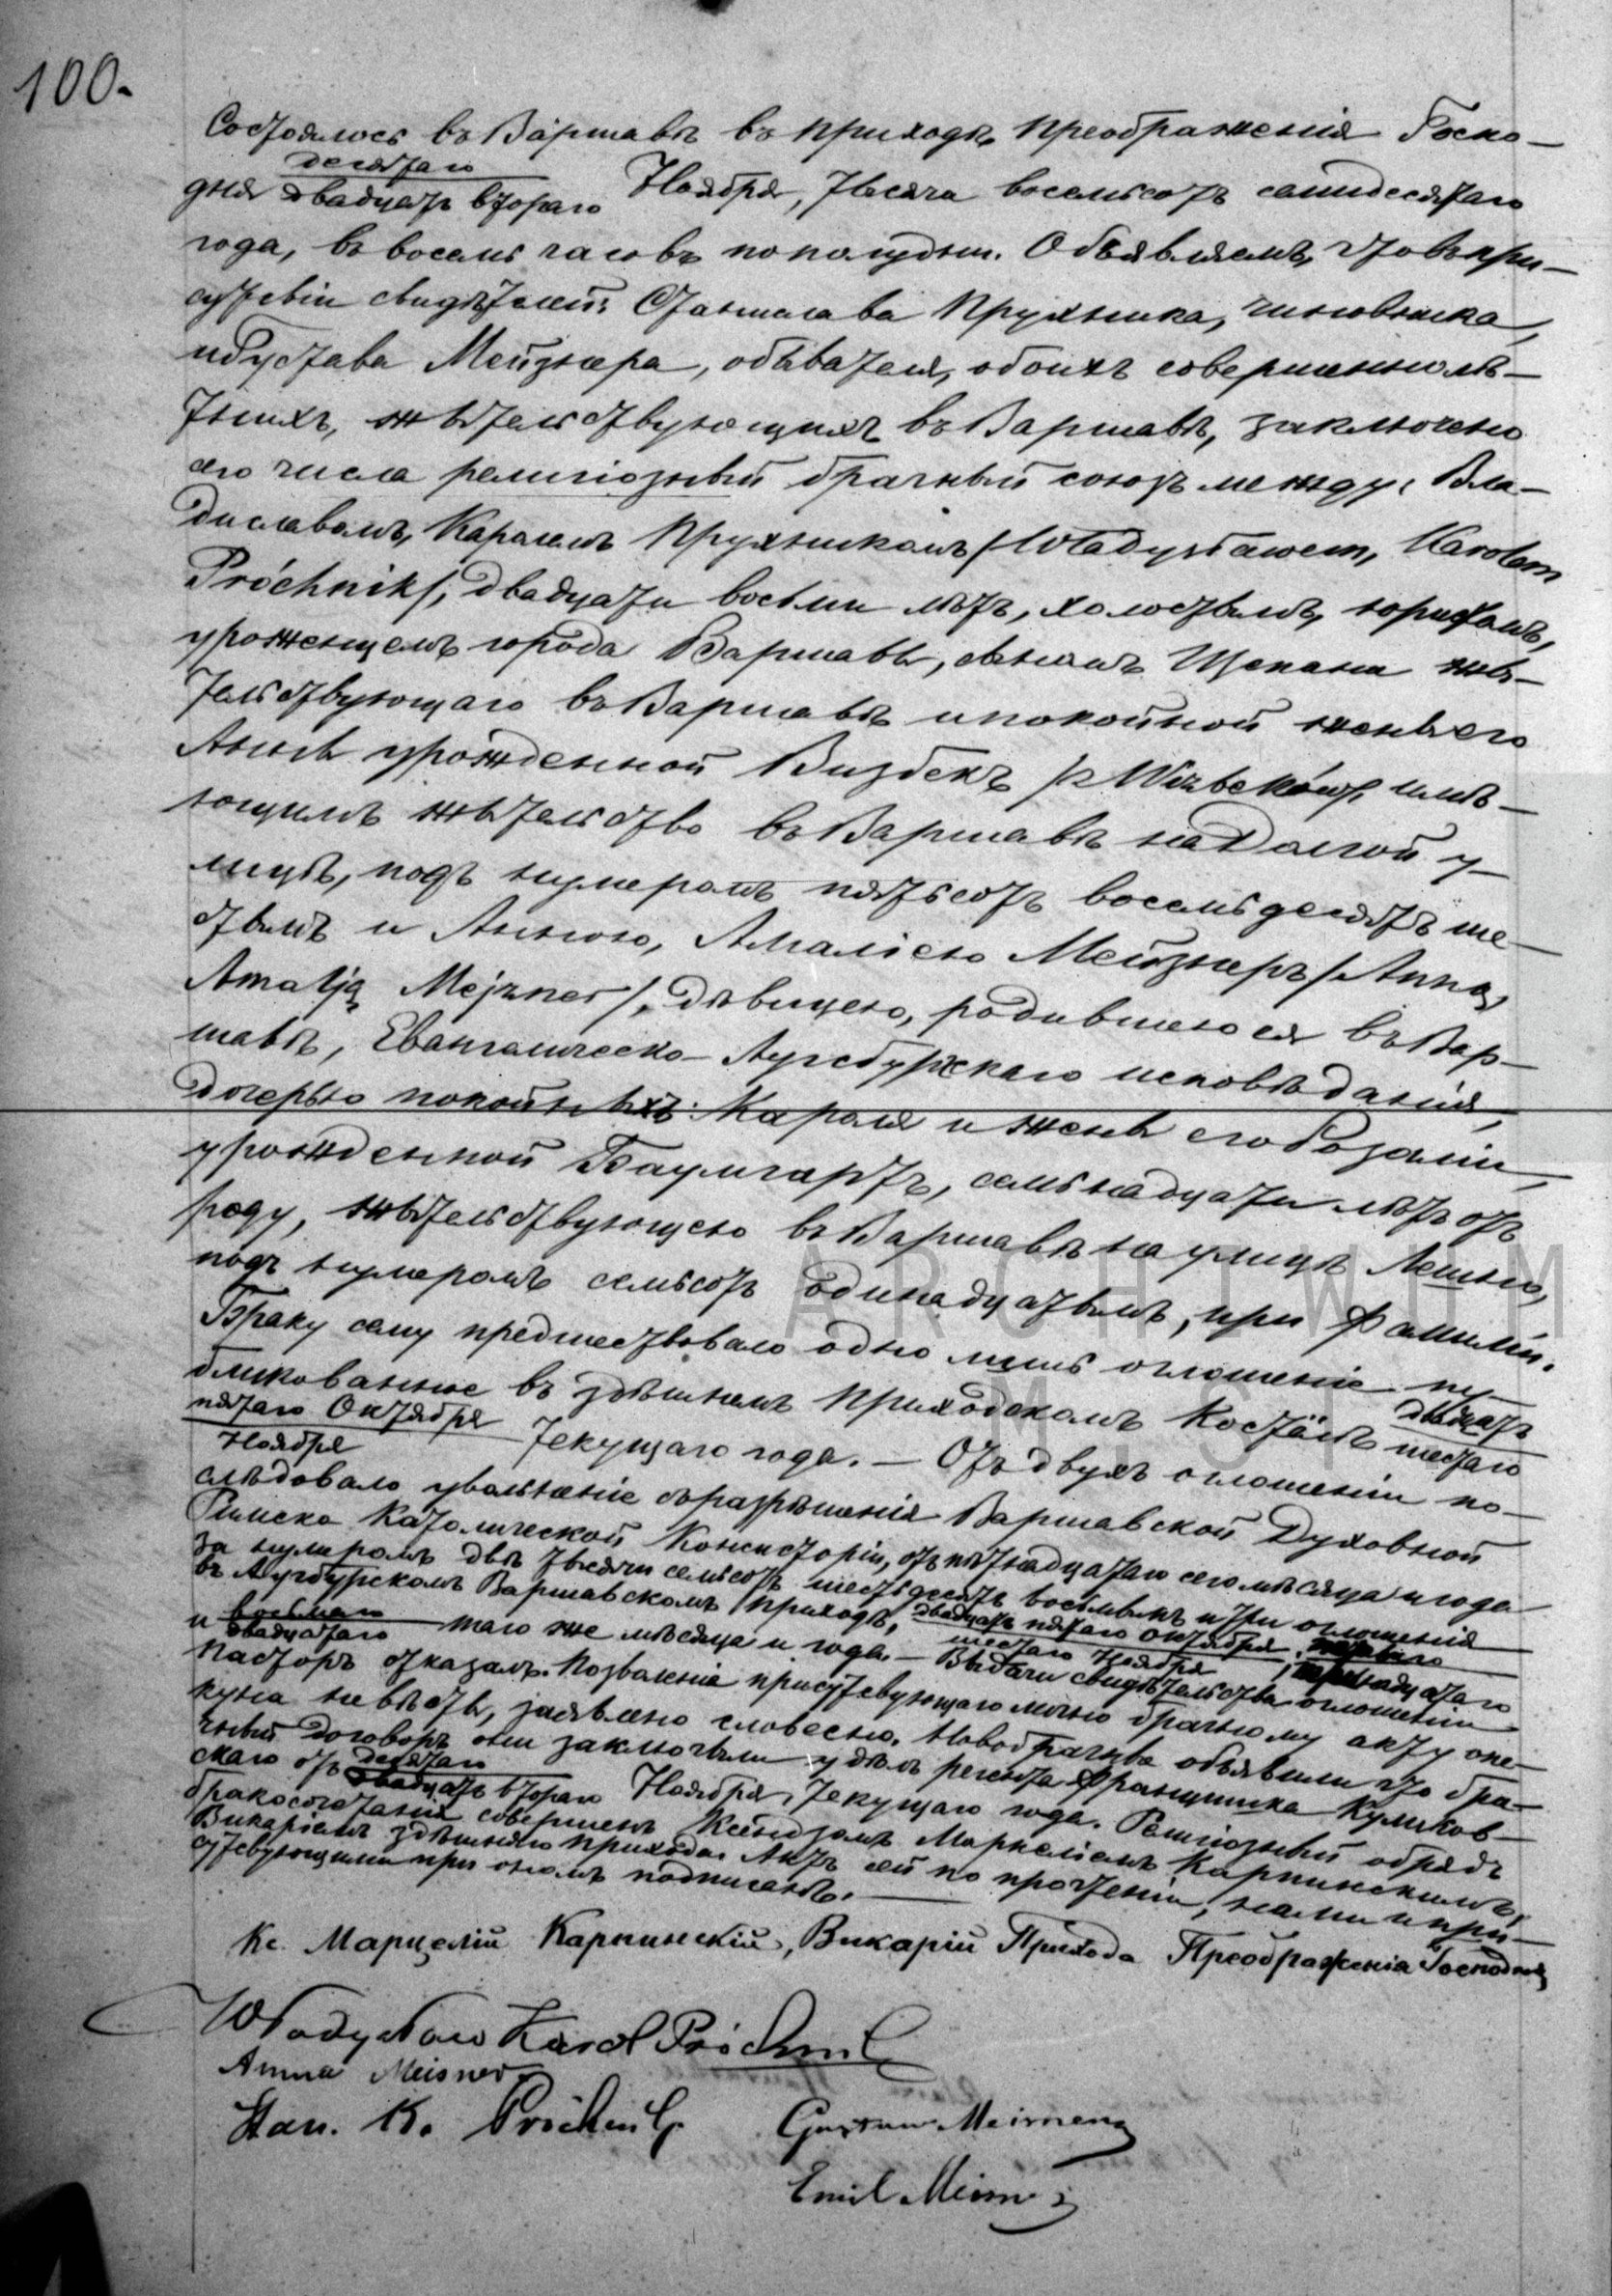 100.
Состоялось въ Варшавѣ въ приходѣ Преображенія Госпо-
десятаго
дня двадцать втораго Ноября, тысяча восемьсотъ семидесятаго
года, въ восемь часовъ пополудни. Объявляемъ, что въ при-
сутствіи свидѣтелей: Станислава Прухника, чиновника,
и Густава Мейзнера, обывателя, обоихъ совершеннолѣ-
тнихъ, жительствующихъ въ Варшавѣ, заключено
сего числа религіозный брачный союзъ между: Вла-
диславомъ, Каролемъ Прухникомъ /Władysławem, Karolem
Próchnik/, двадцати восьми лѣтъ, холостымъ, юристомъ,
уроженцемъ города Варшавы, сыномъ Щепана жи-
тельствующаго въ Варшавѣ и покойной жены его
Анны урожденной Визбекъ /z Wizbeków/, имѣ-
ющимъ жительство въ Варшавѣ на Долгой у-
лицѣ, подъ нумеромъ пятьсотъ восемьдесятъ ше-
стымъ и Анною, Амаліею Мейзнеръ /Anną,
Amalją Mejzner/, дѣвицею, родившеюся въ Вар-
шавѣ, Евангелическо-Аугсбургскаго исповѣданія,
дочерью покойныхъ: Кароля и жены его Розаліи,
урожденной Баумгартъ, семьнадцати лѣтъ отъ
роду, жительствующею въ Варшавѣ на улицѣ Лешно,
подъ нумеромъ семьсотъ одинадцатымъ, при фамиліи.
Браку сему предшествовало одно лишь оглошеніе пу-
бликованное въ здѣшнемъ приходскомъ Костёлѣ двадцать
пятаго Октября шестаго
Ноября текущаго года. — Отъ двухъ оглошеніи по-
слѣдовало увольненіе съ разрѣшенія Варшавской Духовной
Римско Католической Консисторіи, отъ пятнадцатаго сего мѣсяца и года
за нумеромъ двѣ тысячи семьсотъ шестьдесятъ восьмымъ и три оглошенія
въ Аугсбурскомъ Варшавскомъ приходѣ, двадцать пятаго Октября,
шестаго Ноября, тринадцатаго
и восьмаго
двадцатаго того же мѣсяца и года. — Выдачи свидѣтельства оглошеніи
Пасторъ отказалъ. Позволеніе присутсвующаго лично брачному акту опе-
куна невѣсты, заявлено словесно. Новобрачные объявили что бра-
чный договоръ они заключили у дѣлъ регента Францишка Куликов-
скаго отъ десятаго
двадцать втораго Ноября, текущаго года. Религіозный обрядъ
бракосочетанія совершенъ Ксёндзомъ Марцеліемъ Карпинскимъ,
Викаріемъ здѣшняго прихода. Актъ сей по прочтеніи, нами и при-
сутсвующими при ономъ подписанъ. —
Кс. Марцелій Карпинскій, Викарій Прихода Преображенія Господня
Władysław Karol Próchnik
Anna Meisner
Stan. K. Próchnik Gustaw Meisner
Emil Meisner
ARCHIWUM